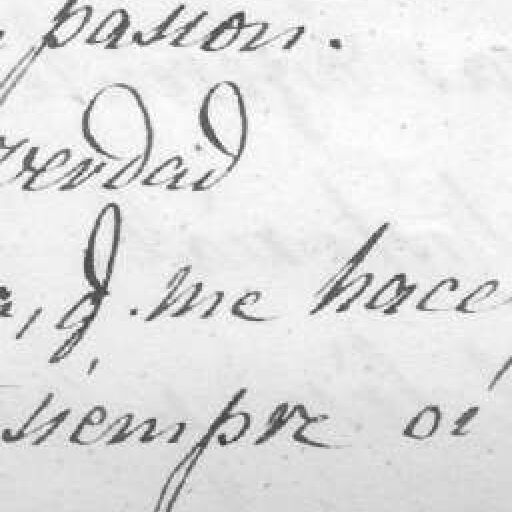 pasion.
verdad
a, q. me hace
siempre oi